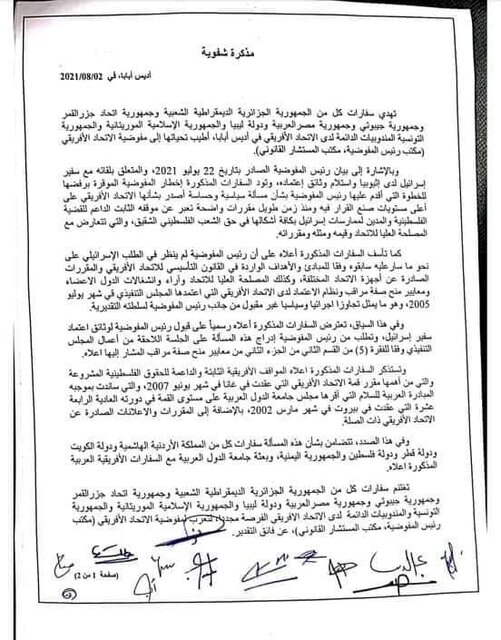 مذكرة شفوية
أديس أبابا، في 2021/08/02
تهدي سفارات كل من الجمهورية الجزائرية الديمقراطية الشعبية وجمهورية اتحاد جزرالقمر
وجمهورية جيبوتي وجمهورية مصرالعربية ودولة ليبيا والجمهورية الإسلامية الموريتانية والجمهورية
التونسية المندوبيات الدائمة لدى الاتحاد الأفريقي في أديس أبابا، أطيب تحياتها إلى مفوضية الاتحاد الأفريقي
(مكتب رئيس المفوضية، مكتب المستشار القانوني).
وبالإشارة إلى بيان رئيس المفوضية الصادر بتاريخ 22 يوليو 2021، والمتعلق بلقائه مع سفير
إسرائيل لدى إثيوبيا واستلام وثائق إعتماده، وتود السفارات المذكورة إخطار المفوضية الموقرة برفضها
للخطوة التي أقدم عليها رئيس المفوضية بشأن مسألة سياسية وحساسة أصدر بشأنها الاتحاد الأفريقي على
أعلى مستويات صنع القرار فيه ومنذ زمن طويل مقررات واضحة تعبر عن موقفه الثابت الداعم للقضية
الفلسطينية والمدين لممارسات إسرائيل بكافة أشكالها في حق الشعب الفلسطيني الشقيق، والتي تتعارض مع
المصلحة العليا للاتحاد وقيمه ومثله ومقرراته.
كما تأسف السفارات المذكورة أعلاه على أن رئيس المفوضية لم ينظر في الطلب الإسرائيلي على
نحو ما سارعليه سابقوه وفقا للمبادئ والأهداف الواردة في القانون التأسيسي للاتحاد الأفريقي والمقررات
الصادرة عن أجهزة الاتحاد المختلفة، وكذلك المصلحة العليا للاتحاد وآراء وانشغالات الدول الاعضاء،
ومعايير منح صفة مراقب ونظام الاعتماد لدى الاتحاد الأفريقي التي اعتمدها المجلس التنفيذي في شهر يوليو
2005، وهو ما يمثل تجاوزا اجرائيا وسياسيا غير مقبول من جانب رئيس المفوضية لسلطته التقديرية.
وفي هذا السياق، تعترض السفارات المذكورة أعلاه رسمياً على قبول رئيس المفوضية لوثائق اعتماد
سفير إسرائيل، وتطلب من رئيس المفوضية إدراج هذه المسألة على الجلسة اللاحقة من أعمال المجلس
التنفيذي وفقا للفقرة (5) من القسم الثاني من الجزء الثاني من معايير منح صفة مراقب المشار إليها اعلاه.
وتستذكر السفارات المذكورة اعلاه المواقف الأفريقية الثابتة والداعمة للحقوق الفلسطينية المشروعة
والتي من أهمها مقرر قمة الاتحاد الأفريقي التي عقدت في غانا في شهر يونيو 2007، والتي ساندت بموجبه
المبادرة العربية للسلام التي أقرها مجلس جامعة الدول العربية على مستوى القمة في دورته العادية الرابعة
عشرة التي عقدت في بيروت في شهر مارس 2002، بالإضافة إلى المقررات والاعلانات الصادرة عن
الاتحاد الأفريقي ذات الصلة.
وفي هذا الصدد، تتضامن بشأن هذه المسألة سفارات كل من المملكة الأردنية الهاشمية ودولة الكويت
ودولة قطر ودولة فلسطين والجمهورية اليمنية، وبعثة جامعة الدول العربية مع السفارات الأفريقية العربية
المذكورة اعلاه.
تغتنم سفارات كل من الجمهورية الجزائرية الديمقراطية الشعبية وجمهورية اتحاد جزرالقمر
وجمهورية جيبوتي وجمهورية مصرالعربية ودولة ليبيا والجمهورية الإسلامية الموريتانية والجمهورية
التونسية والمندوبيات الدائمة لدى الاتحاد الأفريقي الفرصة مجددا، لتعرب لمفوضية الاتحاد الأفريقي (مكتب
رئيس المفوضية، مكتب المستشار القانوني)، عن فائق التقدير.
(صفحة 1 من 2)